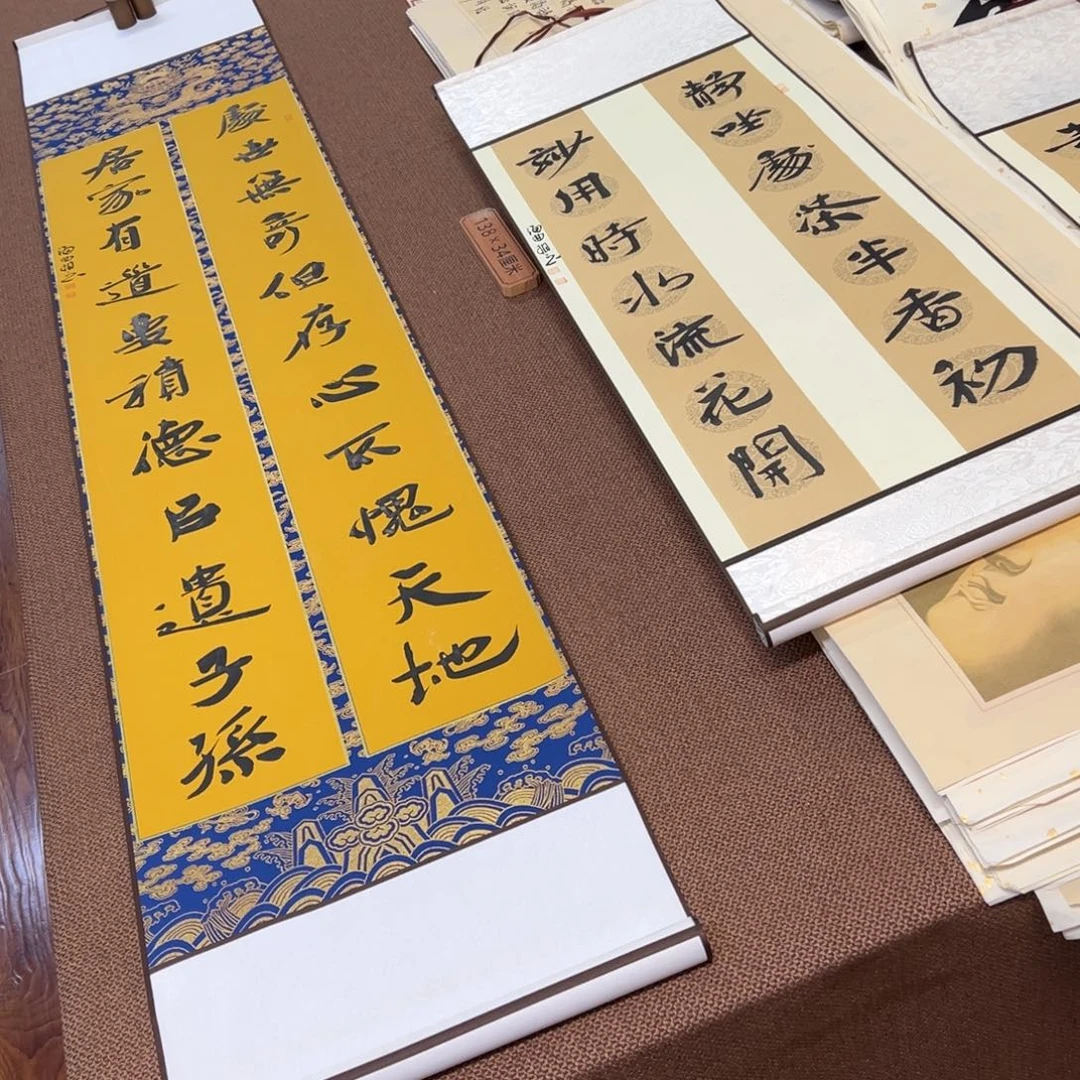 處世無奇但存心不愧天地
居家有道要積德㠯遺子孫
靜坐處茶半香初
妙用時水流花開
138×34厘米